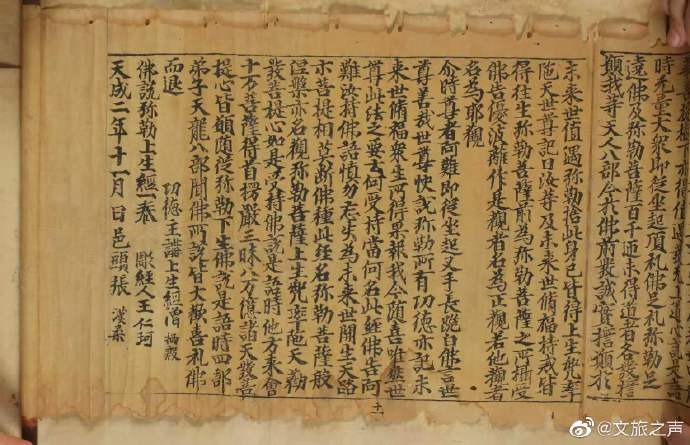 時無量大衆即從坐起頂礼佛足礼弥勒足
遶佛及弥勒菩薩百千迊未得道者各發誓
願我等天人八部今於佛前發誠實誓願於
未來世值遇弥勒捨此身已皆得上生兜率
陁天世尊記曰汝等及未來世脩福持戒皆
得往生弥勒菩薩前為弥勒菩薩之所攝受
佛告優波離作是觀者名為正觀若他觀者
名為耶觀
尒時尊者阿難即從坐起叉手長跪白佛言世
尊善哉世尊快說弥勒所有功德亦記未
來世脩福衆生所得果報我今随喜唯然世
尊此法之要云何受持當何名此經佛告阿
難汝持佛語慎勿忘失為未來世開生天路
示菩提相莫斷佛種此經名弥勒菩薩般
涅槃亦名觀弥勒菩薩上生兜率陁天勸
發菩提心如是受持佛說是語時他方來會
十万菩薩得首楞嚴三昧八万億諸天發菩
提心皆願随從弥勒下生佛說是語時四部
弟子天龍八部聞佛所說皆大歡喜礼佛
而退
功德主講上生經僧 栖殷
佛說弥勒上生經一卷 雕經人王仁珂
天成二年十一月日邑頭張 漢柔
十一
@文旅之声